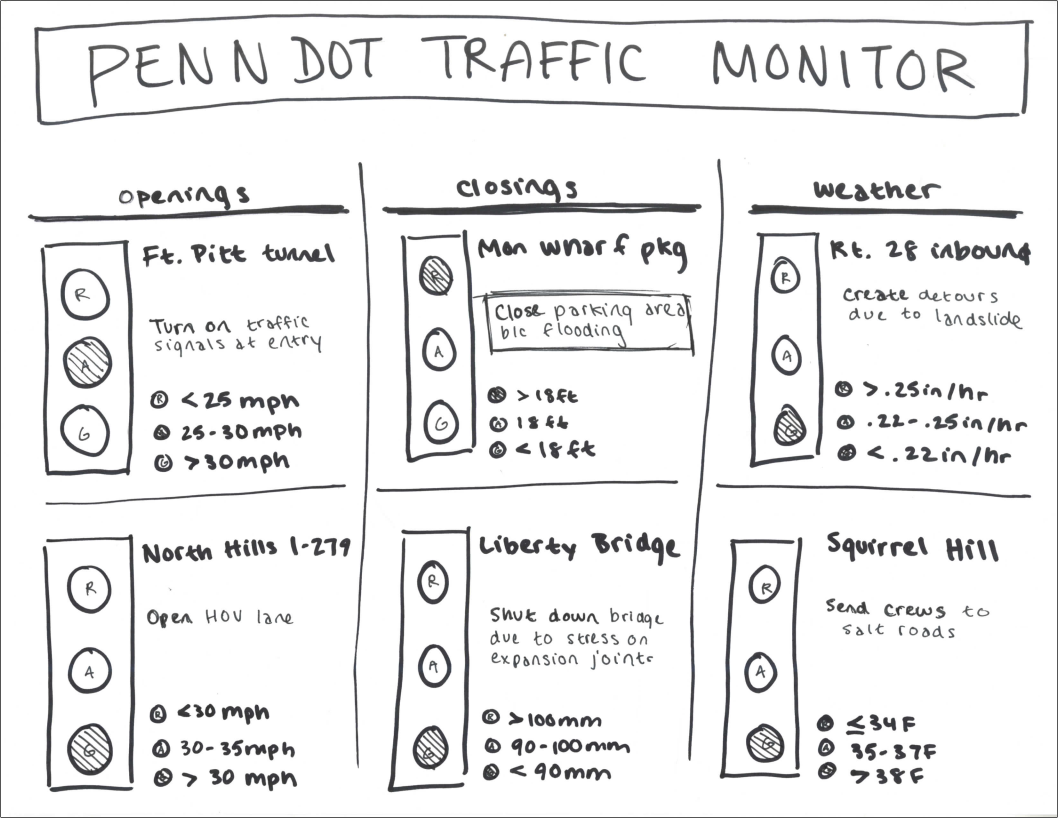 PENNDOT TRAFFIC MONITOR
openings
Ft. Pitt tunnel
R
A
G
Turn on traffic
signals at entry
R <25 mph
A 25-30mph
G >30mph
North Hills I-279
R
A
G
Open HOV lane
R <30 mph
A 30-35mph
G > 30 mph
closings
Mon wharf pkg
R
A
G
Close parking area
b/c flooding
R >18ft
A 18ft
G <18ft
Liberty Bridge
R
A
G
Shut down bridge
due to stress on
expansion joints
R >100mm
A 90-100mm
G <90mm
weather
Rt. 28 inbound
R
A
G
Create detours
due to landslide
R >.25in/hr
A .22-.25in/hr
G <.22in/hr
Squirrel Hill
R
A
G
Send crews to
salt roads
R ≤34F
A 35-37F
G >38F